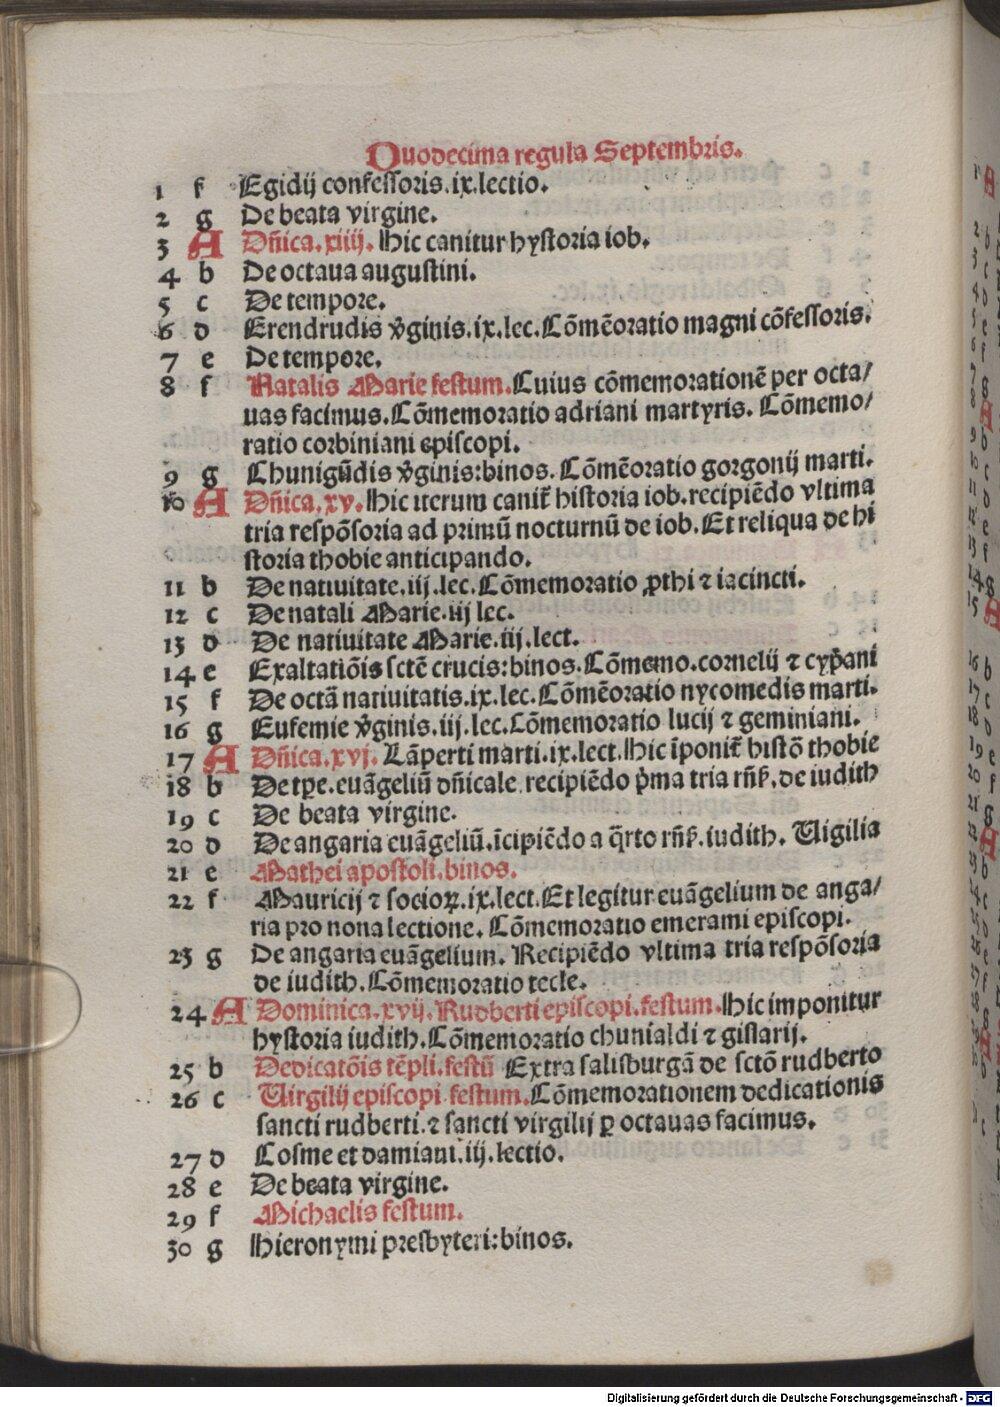 Quodecima regula Septembris.
1 f Egidij confessoris.ix.lectio.
2 g De beata virgine.
3 A Dñica.xiiij. Hic canitur hystoria iob.
4 b De octaua augustini.
5 c De tempore.
6 d Erendrudis v̓ginis.ix.lec.Cõmẽoratio magni cõfessoris.
7 e De tempore.
8 f Natalis Marie festum.Cuius cõmemorationẽ per octa/
uas facimus.Cõmemoratio adriani martyris. Cõmemo/
ratio corbiniani episcopi.
9 g Chunigũdis v̓ginis:binos. Cõmẽoratio gorgonij marti.
10 A Dñica.xv.Hic iterum canit᷑ historia iob.recipiẽdo vltima
tria respõsoria ad primũ nocturnũ de iob.Et reliqua de hi
storia thobie anticipando.
11 b De natiuitate.iij.lec.Cõmemoratio ꝓthi ⁊ iacincti.
12 c De natali Marie.iij lec.
13 d De natiuitate Marie.iij.lect.
14 e Exaltatiõis sctẽ crucis:binos.Cõmemo.cornelij ⁊ cyp̓ani
15 f De octã natiuitatis.ix.lec.Cõmẽoratio nycomedis marti.
16 g Eufemie v̓ginis.iij.lec.Cõmemoratio lucij ⁊ geminiani.
17 A Dñica.xvj. Lãperti marti.ix.lect.Hic ĩponit᷑ histõ thobie
18 b De tp̱e.euãgeliũ dñicale.recipiẽdo p̓ma tria rñs̓.de iudith
19 c De beata virgine.
20 d De angaria euãgeliũ.ĩcipiẽdo a q̃rto rñs̓.iudith. Uigilia
21 e Mathei apostoli.binos.
22 f Mauricij ⁊ socioꝝ.ix.lect.Et legitur euãgelium de anga/
ria pro nona lectione. Cõmemoratio emerami episcopi.
23 g De angaria euãgelium. Recipiẽdo vltima tria respõsoria
de iudith.Cõmemoratio tecle.
24 A Dominica.xvij.Rudberti episcopi.festum.Hic imponitur
hystoria iudith.Cõmemoratio chunialdi ⁊ gislarij.
25 b Dedicatõis tẽpli.festũ Extra salisburgã de sctõ rudberto
26 c Uirgilij episcopi festum.Cõmemorationem dedicationis
sancti rudberti.⁊ sancti virgilij ꝑ octauas facimus.
27 d Cosme et damiani.iij.lectio.
28 e De beata virgine.
29 f Michaelis festum.
30 g Hieronymi presbyteri:binos.
Digitalisierung gefördert durch die Deutsche Forschungsgemeinschaft - DFG